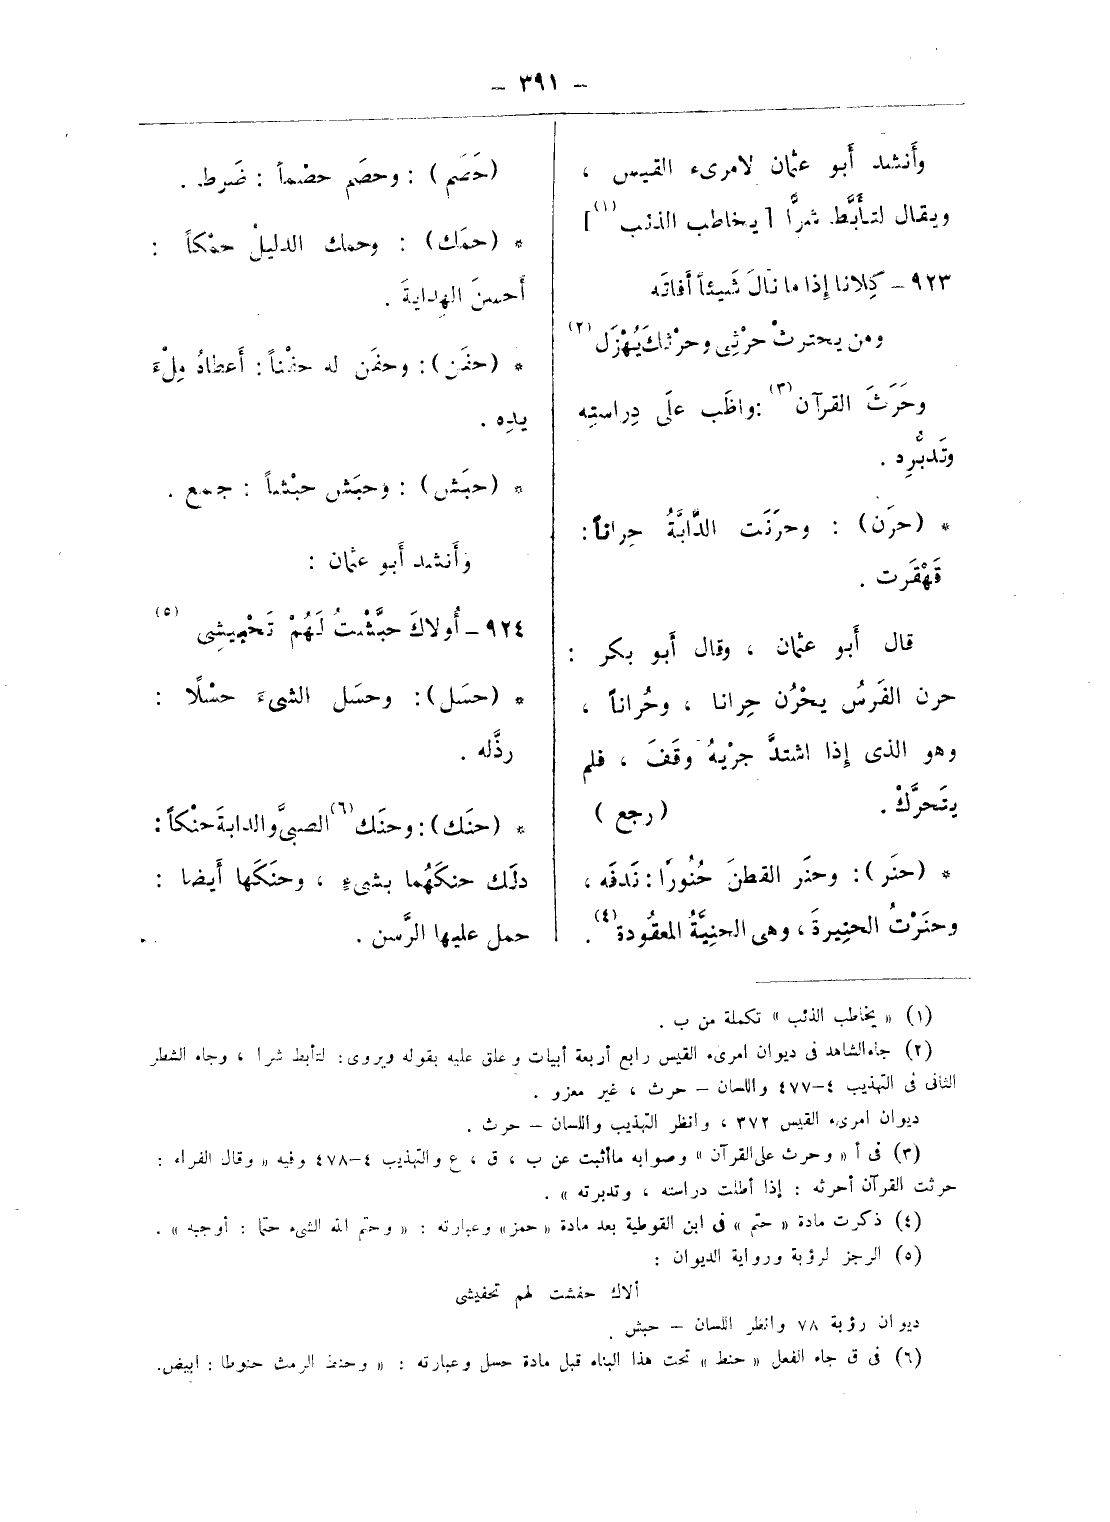 – ٣٩١ –
وأَنشد أَبو عثمان لامرىء القيس ،
ويقال لتأَبَّط شرًّا [ يخاطب الذئب (١) ]
٩٢٣ – كِلانا إِذا ما نالَ شَيئاً أَفاتَه
ومن يحترثْ حرْثِى وحرْثكَ يُهْزَل (٢)
وحَرَثَ القرآن (٣) : واظَب علَى دِراستِه
وتَدبُّرِه .
* (حرَن) : وحرَنَت الدَّابَّةُ حِراناً :
قَهْقَرت .
قال أَبو عثمان ، وقال أَبو بكر :
حرن الفَرسُ يحْرُن حِرانا ، وحُراناً ،
وهو الذى إِذا اشتدَّ جرْيهُ وقَفَ ، فلم
يتَحرَّكْ . (رجع )
* (حنَر) : وحنَر القطنَ حُنُورًا : نَدفَه ،
وحنَرْتُ الحنِيرةَ ، وهى الحنِيَّةُ المعقُودة (٤) .
(حَصَم) : وحصَم حصْماً : ضَرط .
* (حمَك) : وحمك الدليلْ حمْكاً :
أَحسنَ الهِدايةَ .
* (حفَن) : وحفَن له حفْناً : أَعطاهُ مِلْءَ
يدِه .
* (حبَش) : وحبَش حبْشاً : جمع .
وأَنشد أَبو عثمان :
٩٢٤ – أُولاكَ حبَّشْتُ لَهُمْ تَحْبِيشِى (٥)
* (حسَل) : وحسَل الشىءَ حسْلًا :
رذَّله .
* (حنَك) : وحنَك (٦) الصبىَّ والدابةَ حنْكاً :
دلَك حنكَهُما بشىءٍ ، وحنَكَها أَيضا :
حمل عليها الرَّسن .
(١) « يخاطب الذئب » تكملة من ب .
(٢) جاء الشاهد فى ديوان امرىء القيس رابع أربعة أبيات وعلق عليه بقوله ويروى : لتأبط شرا ، وجاء الشطر
الثانى فى التهذيب ٤–٤٧٧ واللسان – حرث ، غير معزو .
ديوان امرىء القيس ٣٧٢ ، وانظر التهذيب واللسان – حرث .
(٣) فى أ « وحرث على القرآن » وصوابه ما أثبت عن ب ، ق ، ع والتهذيب ٤–٤٧٨ وفيه « وقال الفراء :
حرثت القرآن أحرثه : إذا أطلت دراسته ، وتدبرته » .
(٤) ذكرت مادة « حتم » فى ابن القوطية بعد مادة « حمز » وعبارته : « وحتم الله الشىء حتما : أوجبه » .
(٥) الرجز لرؤبة ورواية الديوان :
ألاك حفشت لهم تحفيشى
ديوان رؤبة ٧٨ وانظر اللسان – حبش .
(٦) فى ق جاء الفعل « حنط » تحت هذا البناء قبل مادة حسل وعبارته : « وحنط الرمث حنوطا : ابيض.